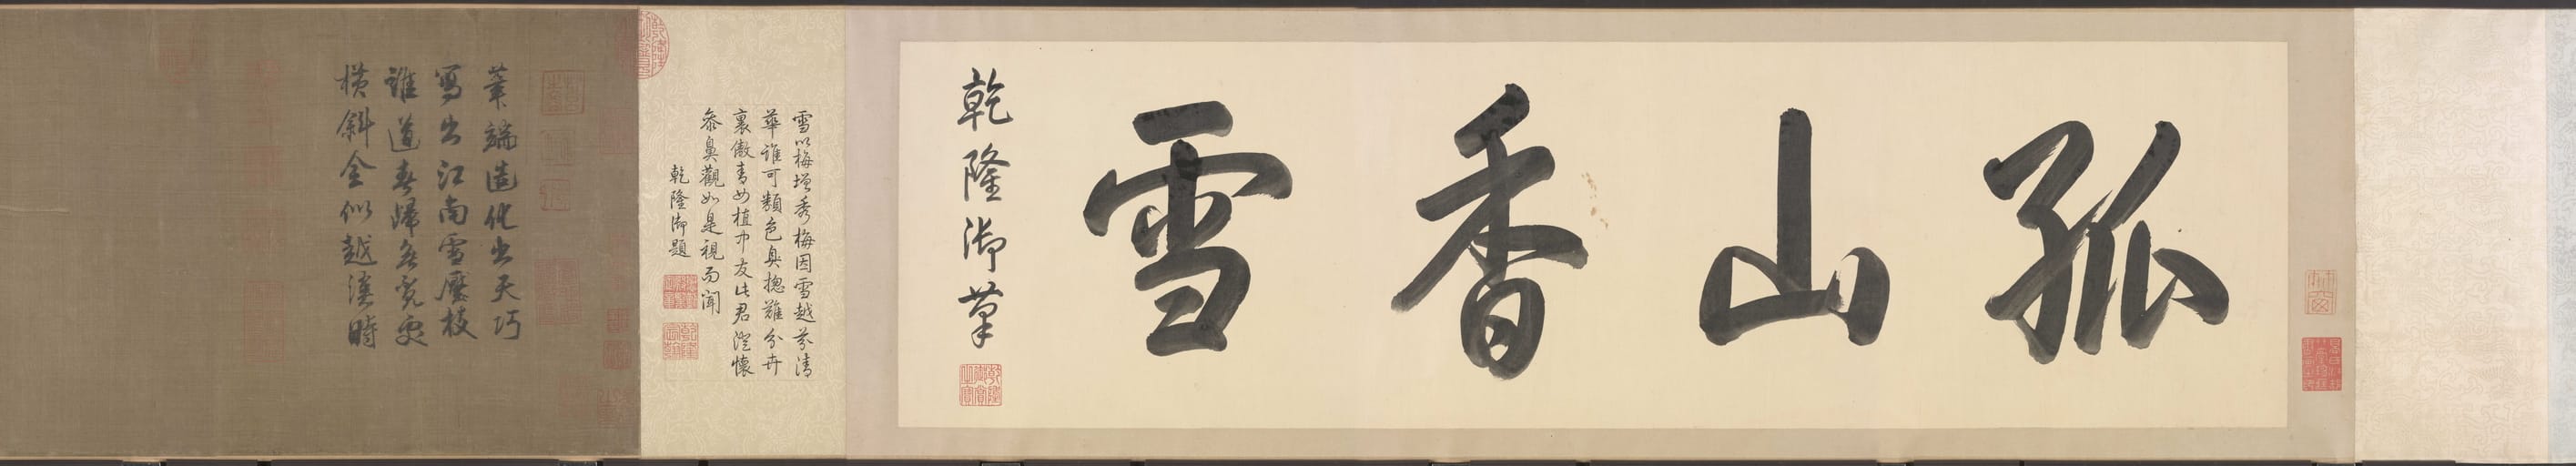 孤山香雪
乾隆御筆
雪以梅增秀梅因雪越芬清
華誰可類色臭揔難分卉
裏傲青女植中友此君澄懷
參鼻觀如是視而聞
乾隆御題
筆端造化出天巧
寫出江南雪壓枝
誰道春歸無覓處
橫斜全似越溪時